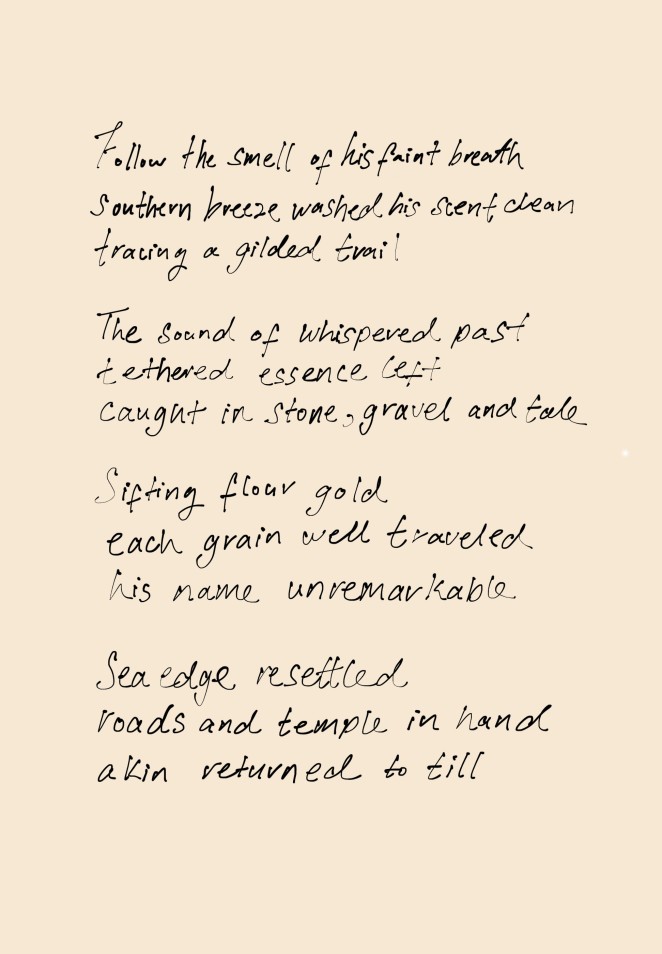 Follow the smell of his faint breath
Southern breeze washed his scent clean
tracing a gilded trail
The sound of whispered past
tethered essence left
caught in stone, gravel and tale
Sifting flour gold
each grain well traveled
his name unremarkable
Sea edge resettled
roads and temple in hand
akin returned to till